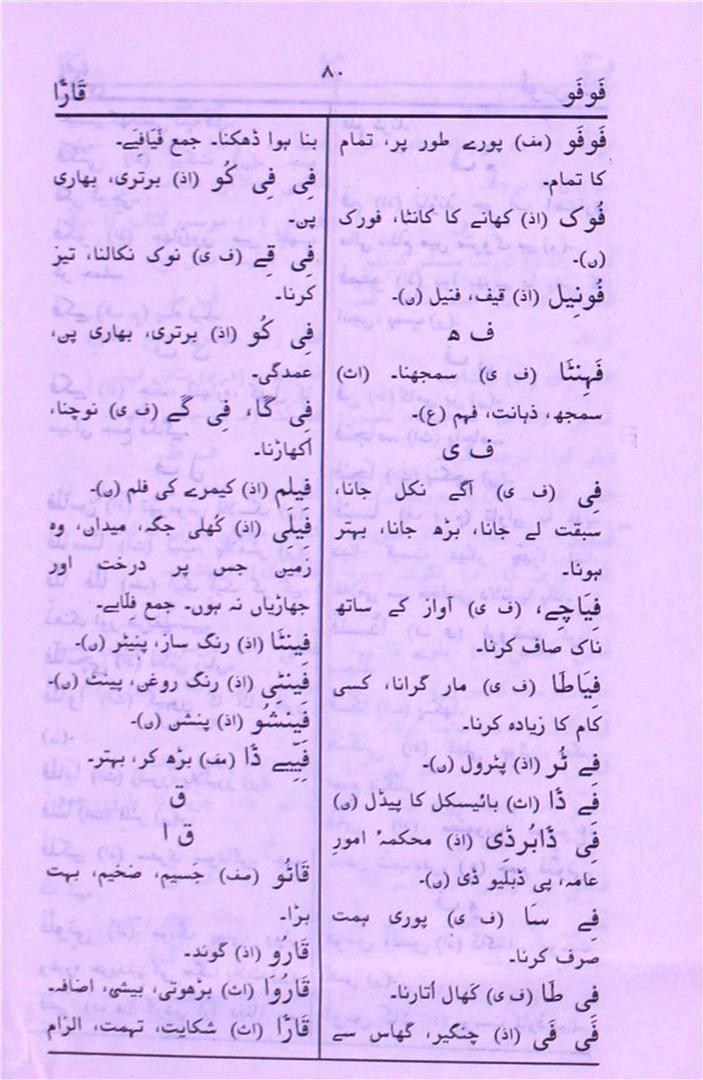 ۸۰
فَوفَو
قَارَّا
فَوفَو (مف) پورے طور پر، تمام
کا تمام۔
فُوک (اذ) کھانے کا کانٹا، فورک
(ں)۔
فُونِیل (اذ) قیف، فنیل (ں)۔
ف ھ
فَہِنتَا (ف ی) سمجھنا۔ (اث)
سمجھ، ذہانت، فہم (ع)۔
ف ی
فِی (ف ی) آگے نکل جانا،
سبقت لے جانا، بڑھ جانا، بہتر
ہونا۔
فِیَاچے، (ف ی) آواز کے ساتھ
ناک صاف کرنا۔
فِیَاطَا (ف ی) مار گرانا، کسی
کام کا زیادہ کرنا۔
فے تَر (اذ) پٹرول (ں)۔
فے ڈَا (اث) بائیسکل کا پیڈل (ں)
فِی ڈَابُرڈِی (اذ) محکمۂ امورِ
عامہ، پی ڈبلیو ڈی (ں)۔
فِے سَا (ف ی) پوری ہمت
صرف کرنا۔
فِی طَا (ف ی) کھال اُتارنا۔
فَی فَی (اذ) چنگیر، گھاس سے
بنا ہوا ڈھکنا۔ جمع فَیَافَے۔
فِی فِی کُو (اذ) برتری، بھاری
پن۔
فِی قِے (ف ی) نوک نکالنا، تیز
کرنا۔
فِی کُو (اذ) برتری، بھاری پن،
عمدگی۔
فِی گَا، فِی گے (ف ی) نوچنا،
اکھاڑنا۔
فِیلِم (اذ) کیمرے کی فلم (ں)۔
فَیلِی (اذ) کُھلی جگہ، میدان، وہ
زمین جس پر درخت اور
جھاڑیاں نہ ہوں۔ جمع فلایے۔
فِینتَا (اذ) رنگ ساز، پنیٹر (ں)۔
فِینتِی (اذ) رنگ روغن، پینٹ (ں)۔
فَینشُو (اذ) پنشن (ں)۔
فِییے ڈَا (مف) بڑھ کر، بہتر۔
ق
ق ا
قَاتُو (صف) جسیم، ضخیم، بہت
بڑا۔
قَارو (اذ) گوند۔
قَارُوَا (اث) بڑھوتی، بیشی، اضافہ۔
قَارَّا (اث) شکایت، تہمت، الزام